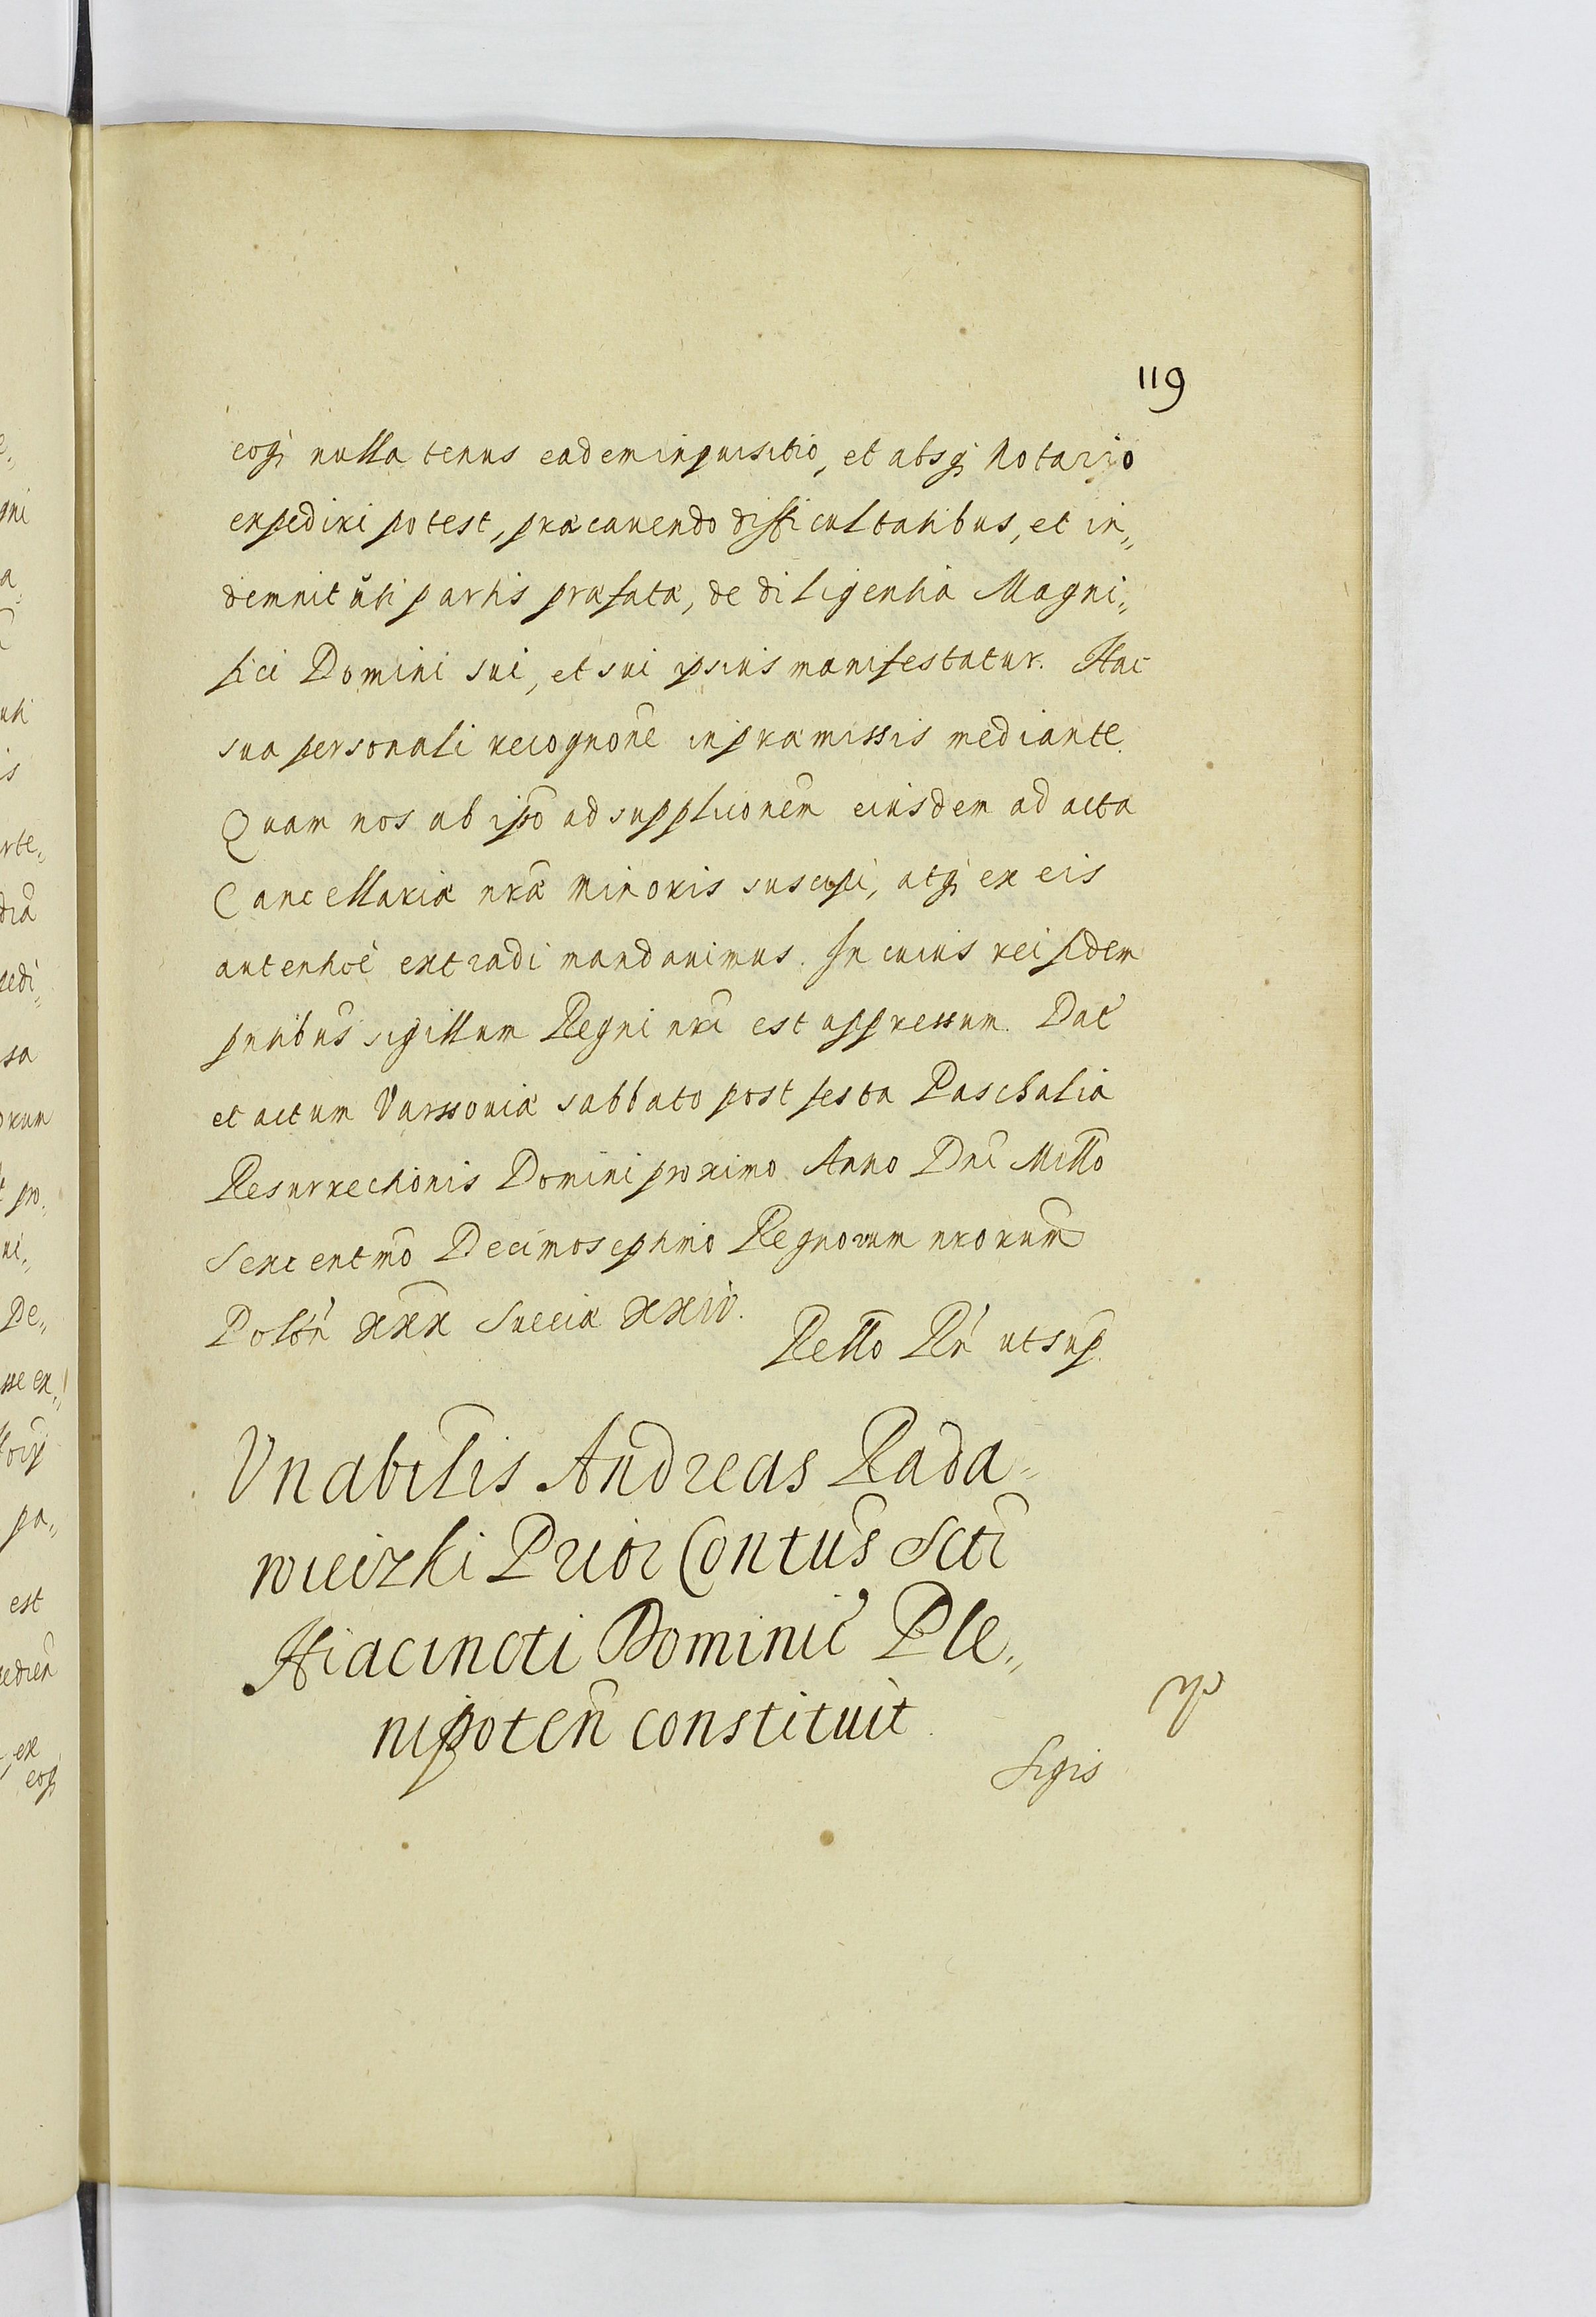 119
eoq; nulla tenus eadem inquisitio, et absq; Notario
expediri potest, præcauendo difficultatibus, et in„
demnitati partis præfatæ, de diligentia Magni„
fici Domini sui, et sui ipsius manifestatur. Hac
sua personali recognone in præmissis mediante.
Quam nos ab ipō ad supplicionem eiusdem ad acta
Cancellariæ nræ Minoris suscepi, atq; ex eis
autenticè extradi mandauimus. In cuius rei fidem
pntibus sigillum Regni nri est appressum. Dat
et actum Varssouiæ sabbato post festa Paschalia
Resurrectionis Domini proximo Anno Dni Millō
Sexcentmō Decimoseptimo Regnorum nrorum
Polōn XXX Sueciæ XXIV.
Rello Rn utsup.
Vnabilis Andreas Rada„
wieizki Prior Contus Scti
Hiacincti Dominic Ple„
nipoten constituit
Sigis